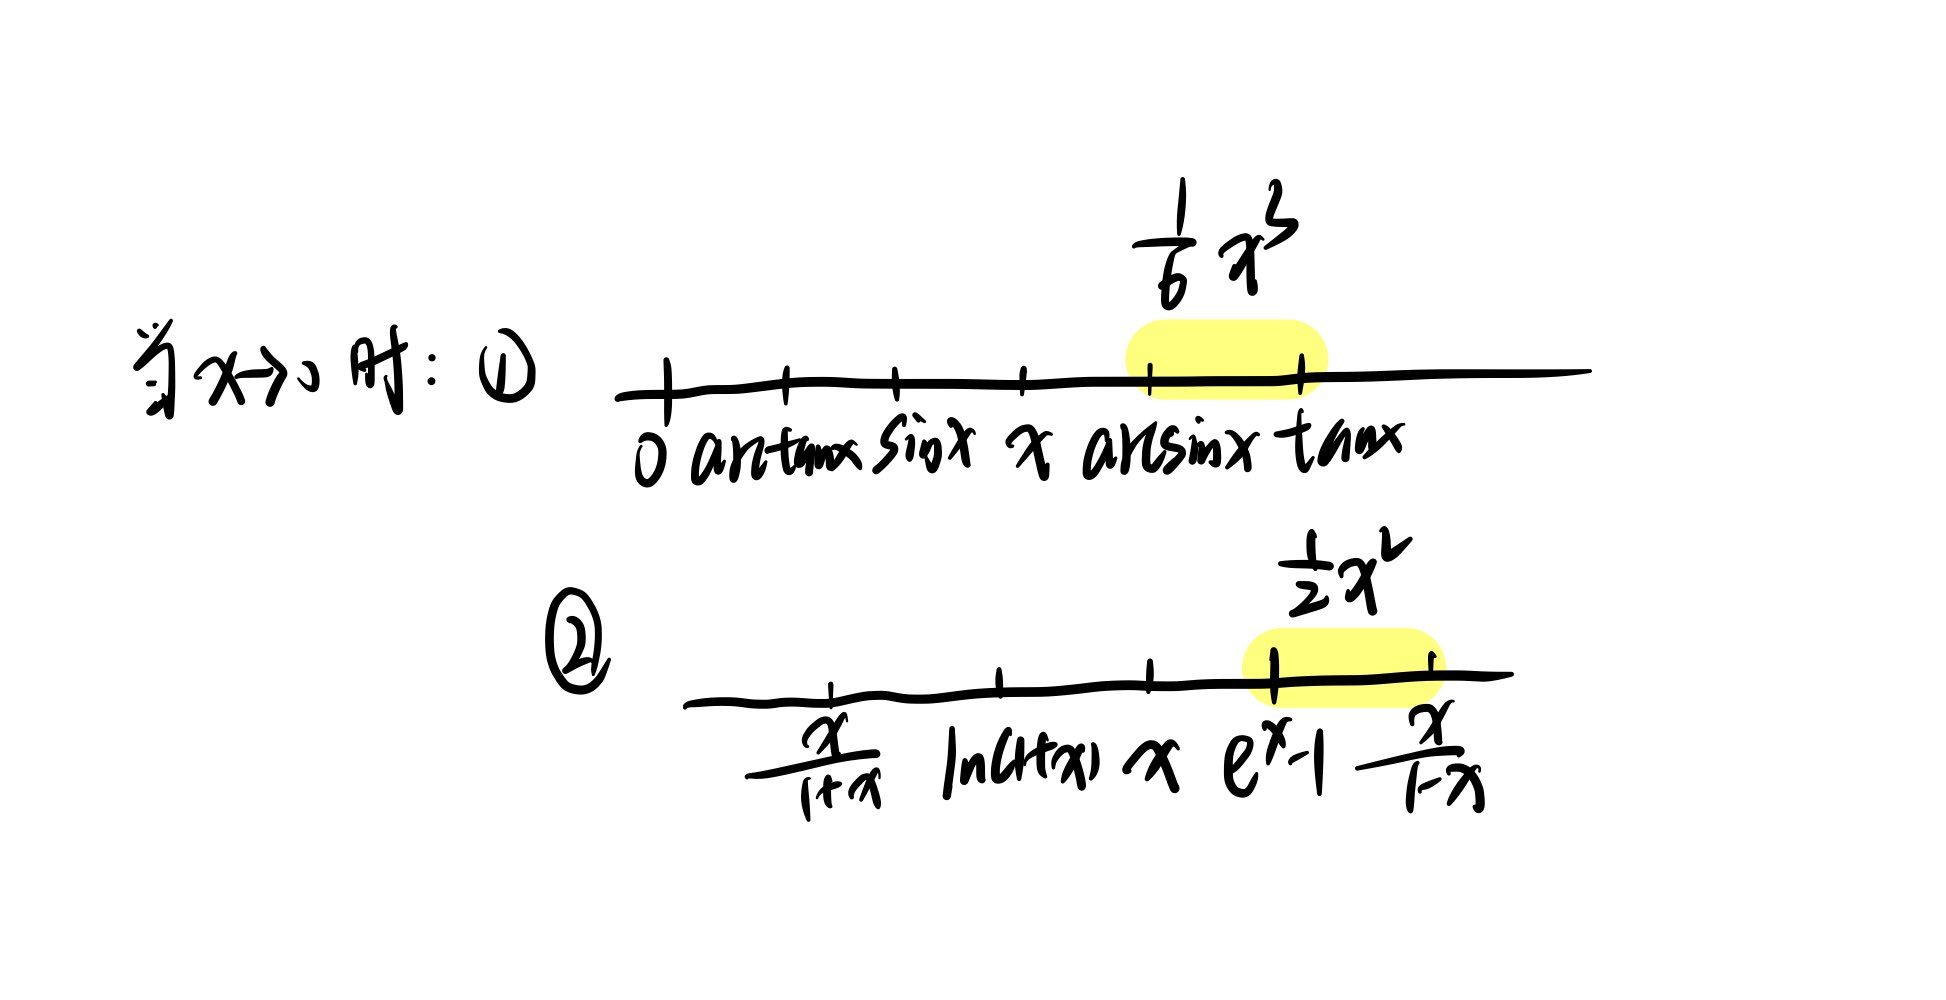 1/6 x³
当 x→0 时: ①
0 arctanx sinx x arcsinx tanx
1/2 x²
②
x/(1+x) ln(1+x) x eˣ-1 x/(1-x)